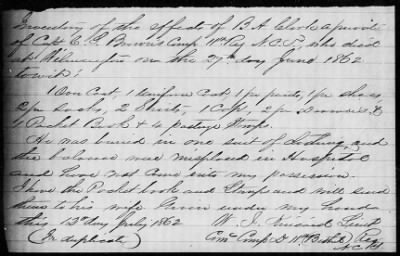 Inventory of the effects of B A Clark a private
of Capt C. S. Brown's Comp Regt N. C. T., who died
at Wilmington on the 27th day June 1862
towit:
1 Over Coat, 1 Uniform Coat, 1 pr pants, 1 pr shoes,
2 pr socks, 2 Shirts, 1 Cap, 2 pr Drawers, &
1 Pocket Book & 4 postage Stamps.
He was buried in one suit of clothing, and
the balance were misplaced in Hospital
and have not came into my possession.
I have the Pocket book and Stamps and will send
them to his wife Given under my hand
this 13th day July 1862 W. J. Kincaid Lieut
(In duplicate) Comp D Regt
N C